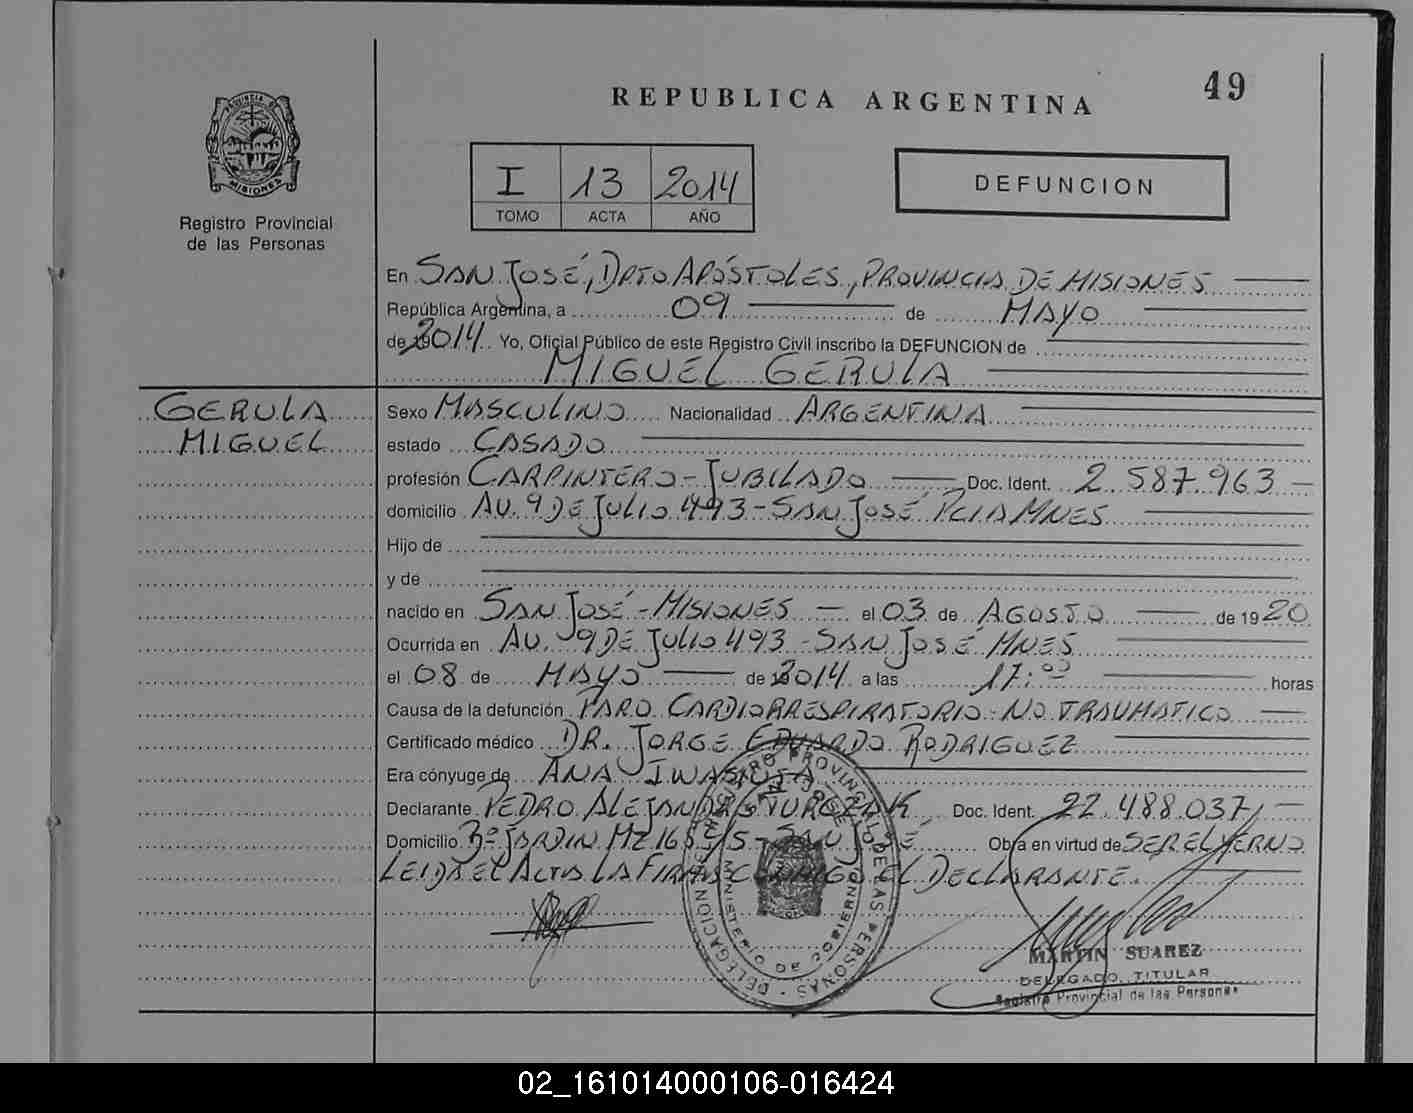 49
REPUBLICA ARGENTINA
PROVINCIA DE
MISIONES
Registro Provincial
de las Personas
I 13 2014
TOMO ACTA AÑO
DEFUNCION
En SAN JOSÉ, DPTO APÓSTOLES, PROVINCIA DE MISIONES
República Argentina, a 09 de MAYO
de 2014 Yo, Oficial Público de este Registro Civil inscribo la DEFUNCION de
MIGUEL GERULA
GERULA
MIGUEL
Sexo MASCULINO Nacionalidad ARGENTINA
estado CASADO
profesión CARPINTERO - JUBILADO Doc. Ident. 2.587.963
domicilio AV. 9 DE JULIO 493 - SAN JOSÉ PCIA MNES
Hijo de
y de
nacido en SAN JOSÉ - MISIONES el 03 de AGOSTO de 1920
Ocurrida en AV. 9 DE JULIO 493 - SAN JOSÉ MNES
el 08 de MAYO de 2014 a las 17:00 horas
Causa de la defunción PARO CARDIORRESPIRATORIO - NO TRAUMATICO
Certificado médico DR. JORGE EDUARDO RODRIGUEZ
Era cónyuge de ANA
Declarante PEDRO ALEJANDRO Doc. Ident. 22.488.037
Domicilio Bº JARDIN MZ 165 SAN JOSÉ Obra en virtud de SER EL YERNO
LEIDA EL ACTA LA FIRMA CONMIGO EL DECLARANTE.
REGISTRO PROVINCIAL DE LAS PERSONAS - DELEGACION
SAN JOSE
MINISTERIO DE GOBIERNO
MARTIN SUAREZ
DELEGADO TITULAR
Registro Provincial de las Personas
02_161014000106-016424